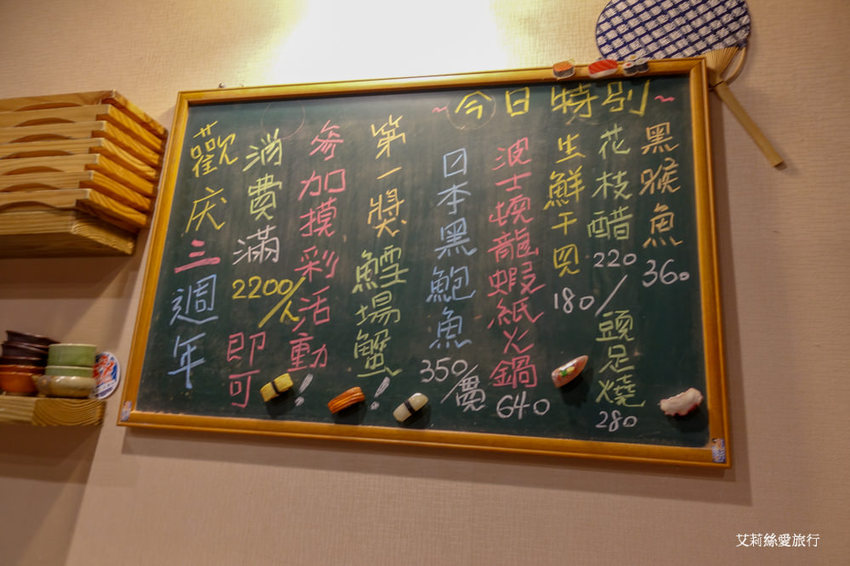 ~今日特別~
黑猴魚 360
花枝醋 220/頭足燒 280
生鮮干貝 180
波士頓龍蝦紙火鍋 640
日本黑鮑魚 350/貫
歡庆三週年
消費滿2200/人 即可
參加摸彩活動!
第一獎 鱈場蟹!
艾莉絲愛旅行